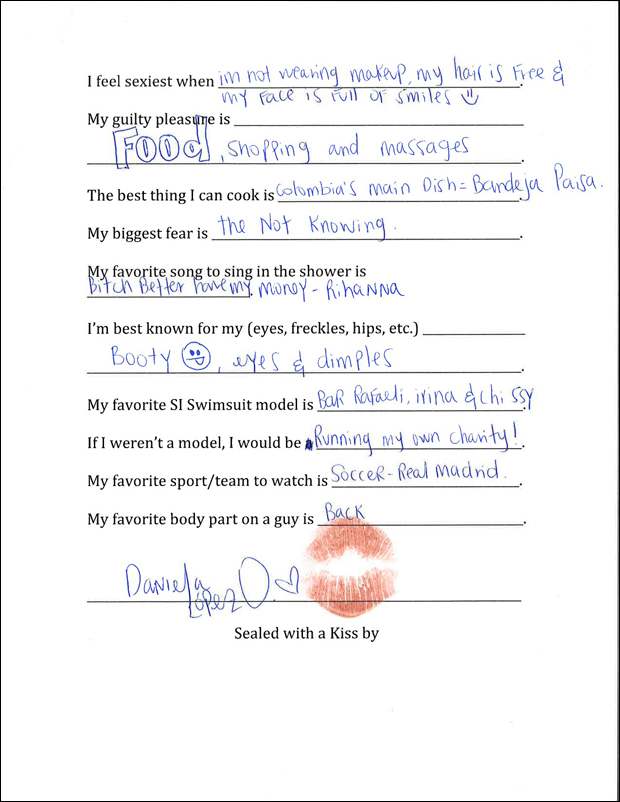 I feel sexiest when im not wearing makeup, my hair is Free &
my face is Full OF smiles
My guilty pleasure is
Food, shopping and massages.
The best thing I can cook is Colombia's main Dish = Bandeja Paisa.
My biggest fear is the Not Knowing.
My favorite song to sing in the shower is
Bitch Better have my money - Rihanna
I'm best known for my (eyes, freckles, hips, etc.)
Booty, eyes & dimples.
My favorite SI Swimsuit model is Bar Rafaeli, irina & Chrissy
If I weren't a model, I would be Running my own charity!.
My favorite sport/team to watch is Soccer - Real Madrid.
My favorite body part on a guy is Back.
Daniela
López O.
Sealed with a Kiss by